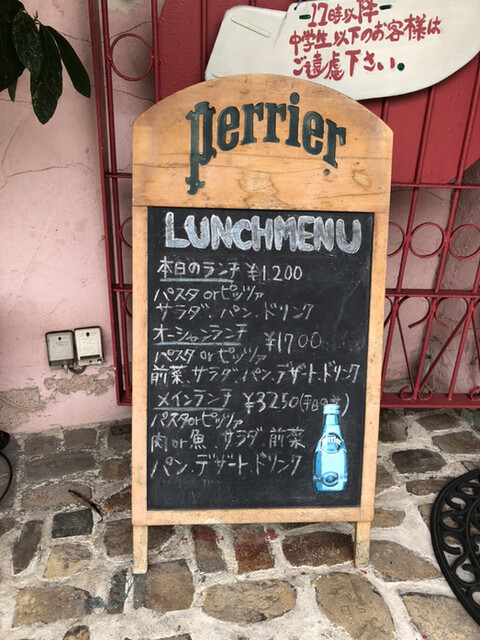 -17時以降-
中学生以下のお客様は
ご遠慮下さい。
perrier
LUNCHMENU
本日のランチ ¥1.200
パスタ orピッツァ
サラダ、パン、ドリンク
オーシャンランチ ¥1700
パスタ orピッツァ
前菜、サラダ、パン、デザート、ドリンク
メインランチ ¥3250
パスタorピッツァ
肉or魚、サラダ、前菜
パン、デザート、ドリンク